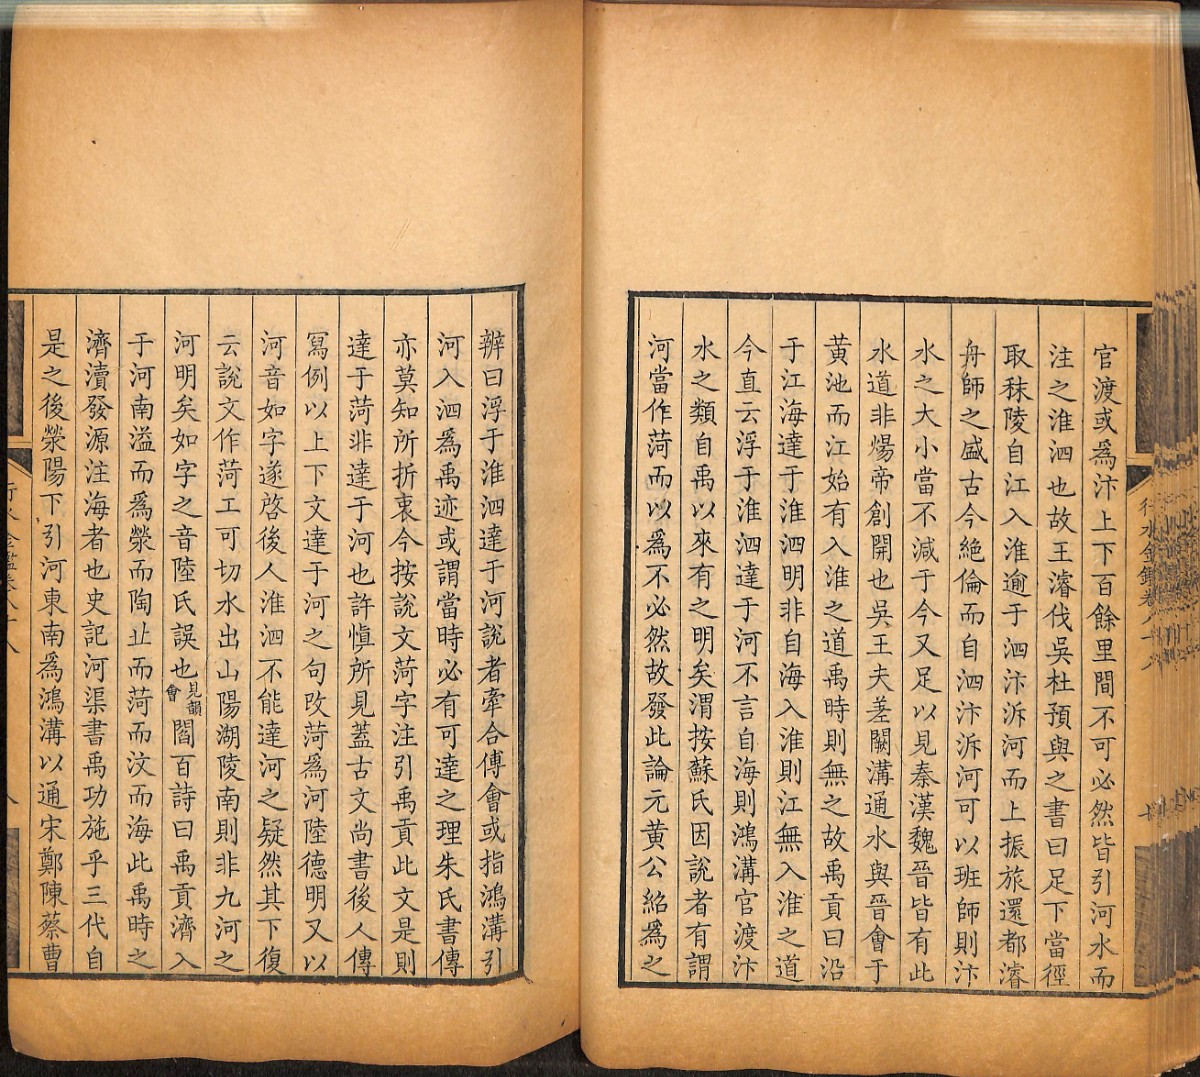 官渡或爲汴上下百餘里間不可必然皆引河水而
注之淮泗也故王濬伐吳杜預與之書曰足下當徑
取秣陵自江入淮逾于泗汴泝河而上振旅還都濬
舟師之盛古今絕倫而自泗汴泝河可以班師則汴
水之大小當不減于今又足以見秦漢魏晉皆有此
水道非煬帝創開也吳王夫差闕溝通水與晉會于
黄池而江始有入淮之道禹時則無之故禹貢曰沿
于江海達于淮泗明非自海入淮則江無入淮之道
今直云浮于淮泗達于河不言自海則鴻溝官渡汴
水之類自禹以來有之明矣渭按蘇氏因說者有謂
河當作菏而以爲不必然故發此論元黄公紹爲之
辨曰浮于淮泗達于河說者牽合傅會或指鴻溝引
河入泗爲禹迹或謂當時必有可達之理朱氏書傳
亦莫知所折衷今按說文菏字注引禹貢此文是則
達于菏非達于河也許慎所見蓋古文尚書後人傳
寫例以上下文達于河之句改菏爲河陸德明又以
河音如字遂啓後人淮泗不能達河之疑然其下復
云說文作菏工可切水出山陽湖陵南則非九河之
河明矣如字之音陸氏誤也見韻會閻百詩曰禹貢濟入
于河南溢而爲滎而陶丘而菏而汶而海此禹時之
濟瀆發源注海者也史記河渠書禹功施乎三代自
是之後滎陽下引河東南爲鴻溝以通宋鄭陳蔡曹
行水金鑑卷八十八